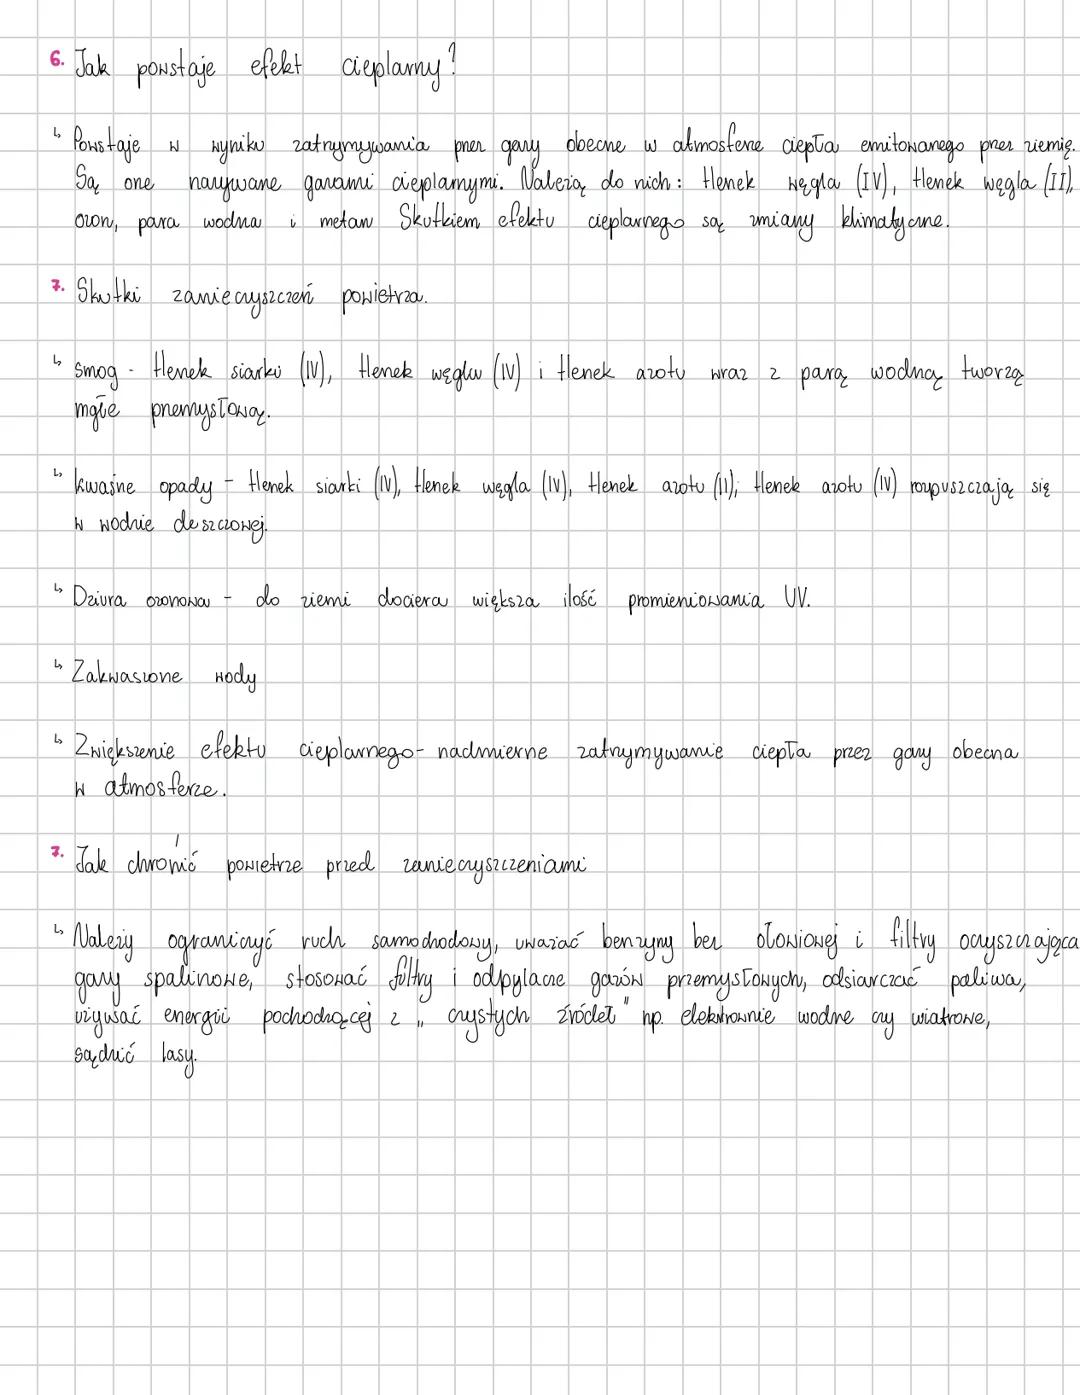 6. Jak powstaje efekt cieplarny?
↳ Powstaje w wyniku zatrzymywania przez gazy obecne w atmosferze ciepła emitowanego przez ziemię.
Są one nazywane gazami cieplarnymi. Należią do nich: tlenek węgla (IV), tlenek węgla (II),
ozon, para wodna i metan Skutkiem efektu cieplarnego są zmiany klimatyczne.
7. Skutki zanieczyszczeń powietrza.
↳ Smog - tlenek siarki (IV), tlenek węglu (IV) i tlenek azotu wraz z parą wodną tworzą
mgłe przemysłową.
↳ kwaśne opady - tlenek siarki (IV), tlenek węgla (IV), tlenek azotu (II); tlenek azotu (IV) rozpuszczają się
w wodzie deszczowej.
↳ Dziura ozonowa - do ziemi dociera większa ilość promieniowania UV.
↳ Zakwaszone wody
↳ Zwiększenie efektu cieplarnego - nadmierne zatrzymywanie ciepła przez gazy obecna
w atmosferze.
7. Jak chronić powietrze przed zanieczyszczeniami
↳ Należy ograniczyć ruch samochodowy, uważać benzyny bez ołowiowej i filtry oczyszczająca
gazy spalinowe, stosować filtry i odpylacze gazów przemysłowych, odsiarczać paliwa,
używać energii pochodzącej z „czystych źródeł" np. elektrownie wodne czy wiatrowe,
sądzić lasy.